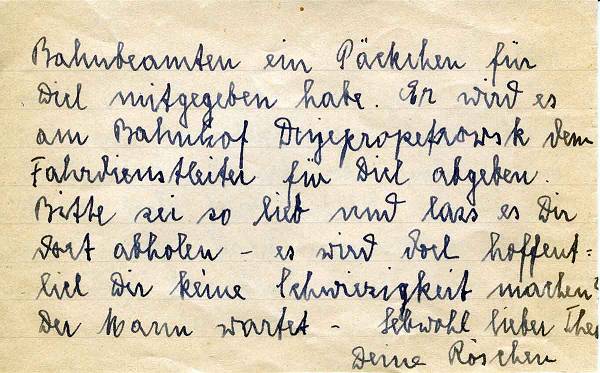 Bahnbeamten ein Päckchen für
Dich mitgegeben habe. Er wird es
am Bahnhof Dnjepropetrowsk dem
Fahrdienstleiter für Dich abgeben.
Bitte sei so lieb und lass es Dir
dort abholen – es wird doch hoffent=
lich Dir keine Schwierigkeit machen?
Der Mann wartet – Lebwohl lieber Theo
Deine Röschen